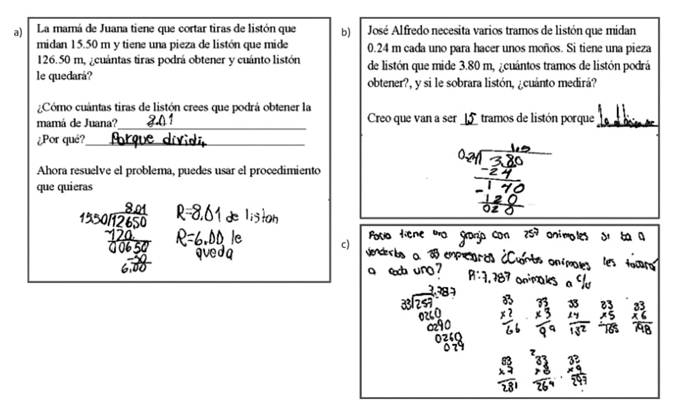 a)
La mamá de Juana tiene que cortar tiras de listón que
midan 15.50 m y tiene una pieza de listón que mide
126.50 m, ¿cuántas tiras podrá obtener y cuánto listón
le quedará?
¿Cómo cuántas tiras de listón crees que podrá obtener la
mamá de Juana? 8.01
¿Por qué? Porque dividi
Ahora resuelve el problema, puedes usar el procedimiento
que quieras
8.01
1550/12650
120
00650
6.00
R=8.01 de liston
R=6.00 le
queda
b)
José Alfredo necesita varios tramos de listón que midan
0.24 m cada uno para hacer unos moños. Si tiene una pieza
de listón que mide 3.80 m, ¿cuántos tramos de listón podrá
obtener?, y si le sobrara listón, ¿cuánto medirá?
Creo que van a ser 15 tramos de listón porque
3.80
-24
-140
-120
020
c)
tiene una granja con 257 animales si
a 33 ¿Cuántos animales les
a cada uno? R:7.787 animales a c/u
33/257
0260
0290
0260
029
33 x2 66
33 x3 99
33 x4 132
33 x5 165
33 x6 198
33 x7 231
33 x8 264
33 x9 297